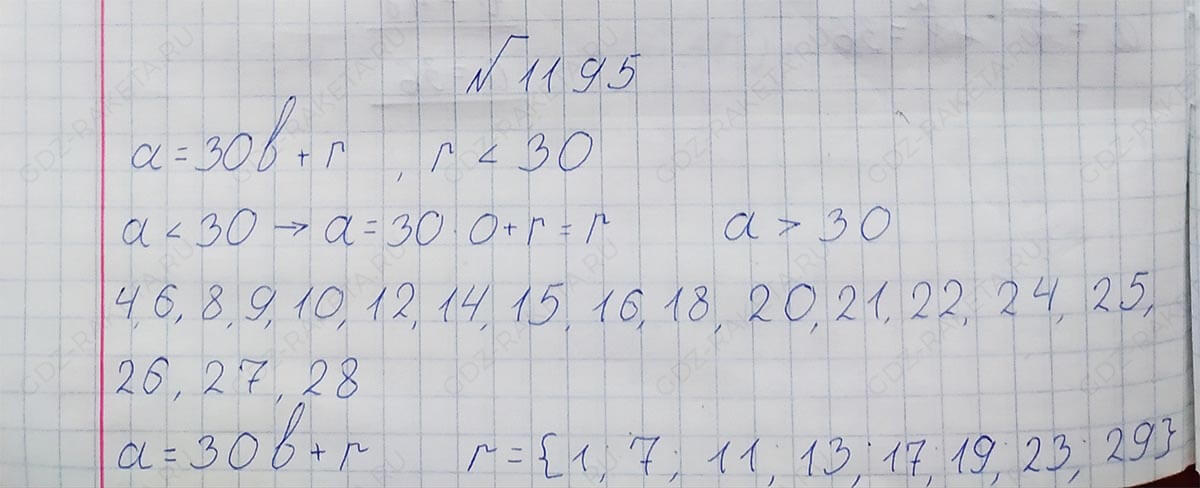 №1195
a = 30b + r , r < 30
a < 30 → a = 30 · 0 + r = r a > 30
4, 6, 8, 9, 10, 12, 14, 15, 16, 18, 20, 21, 22, 24, 25,
26, 27, 28
a = 30b + r r = {1, 7; 11; 13; 17; 19; 23; 29}